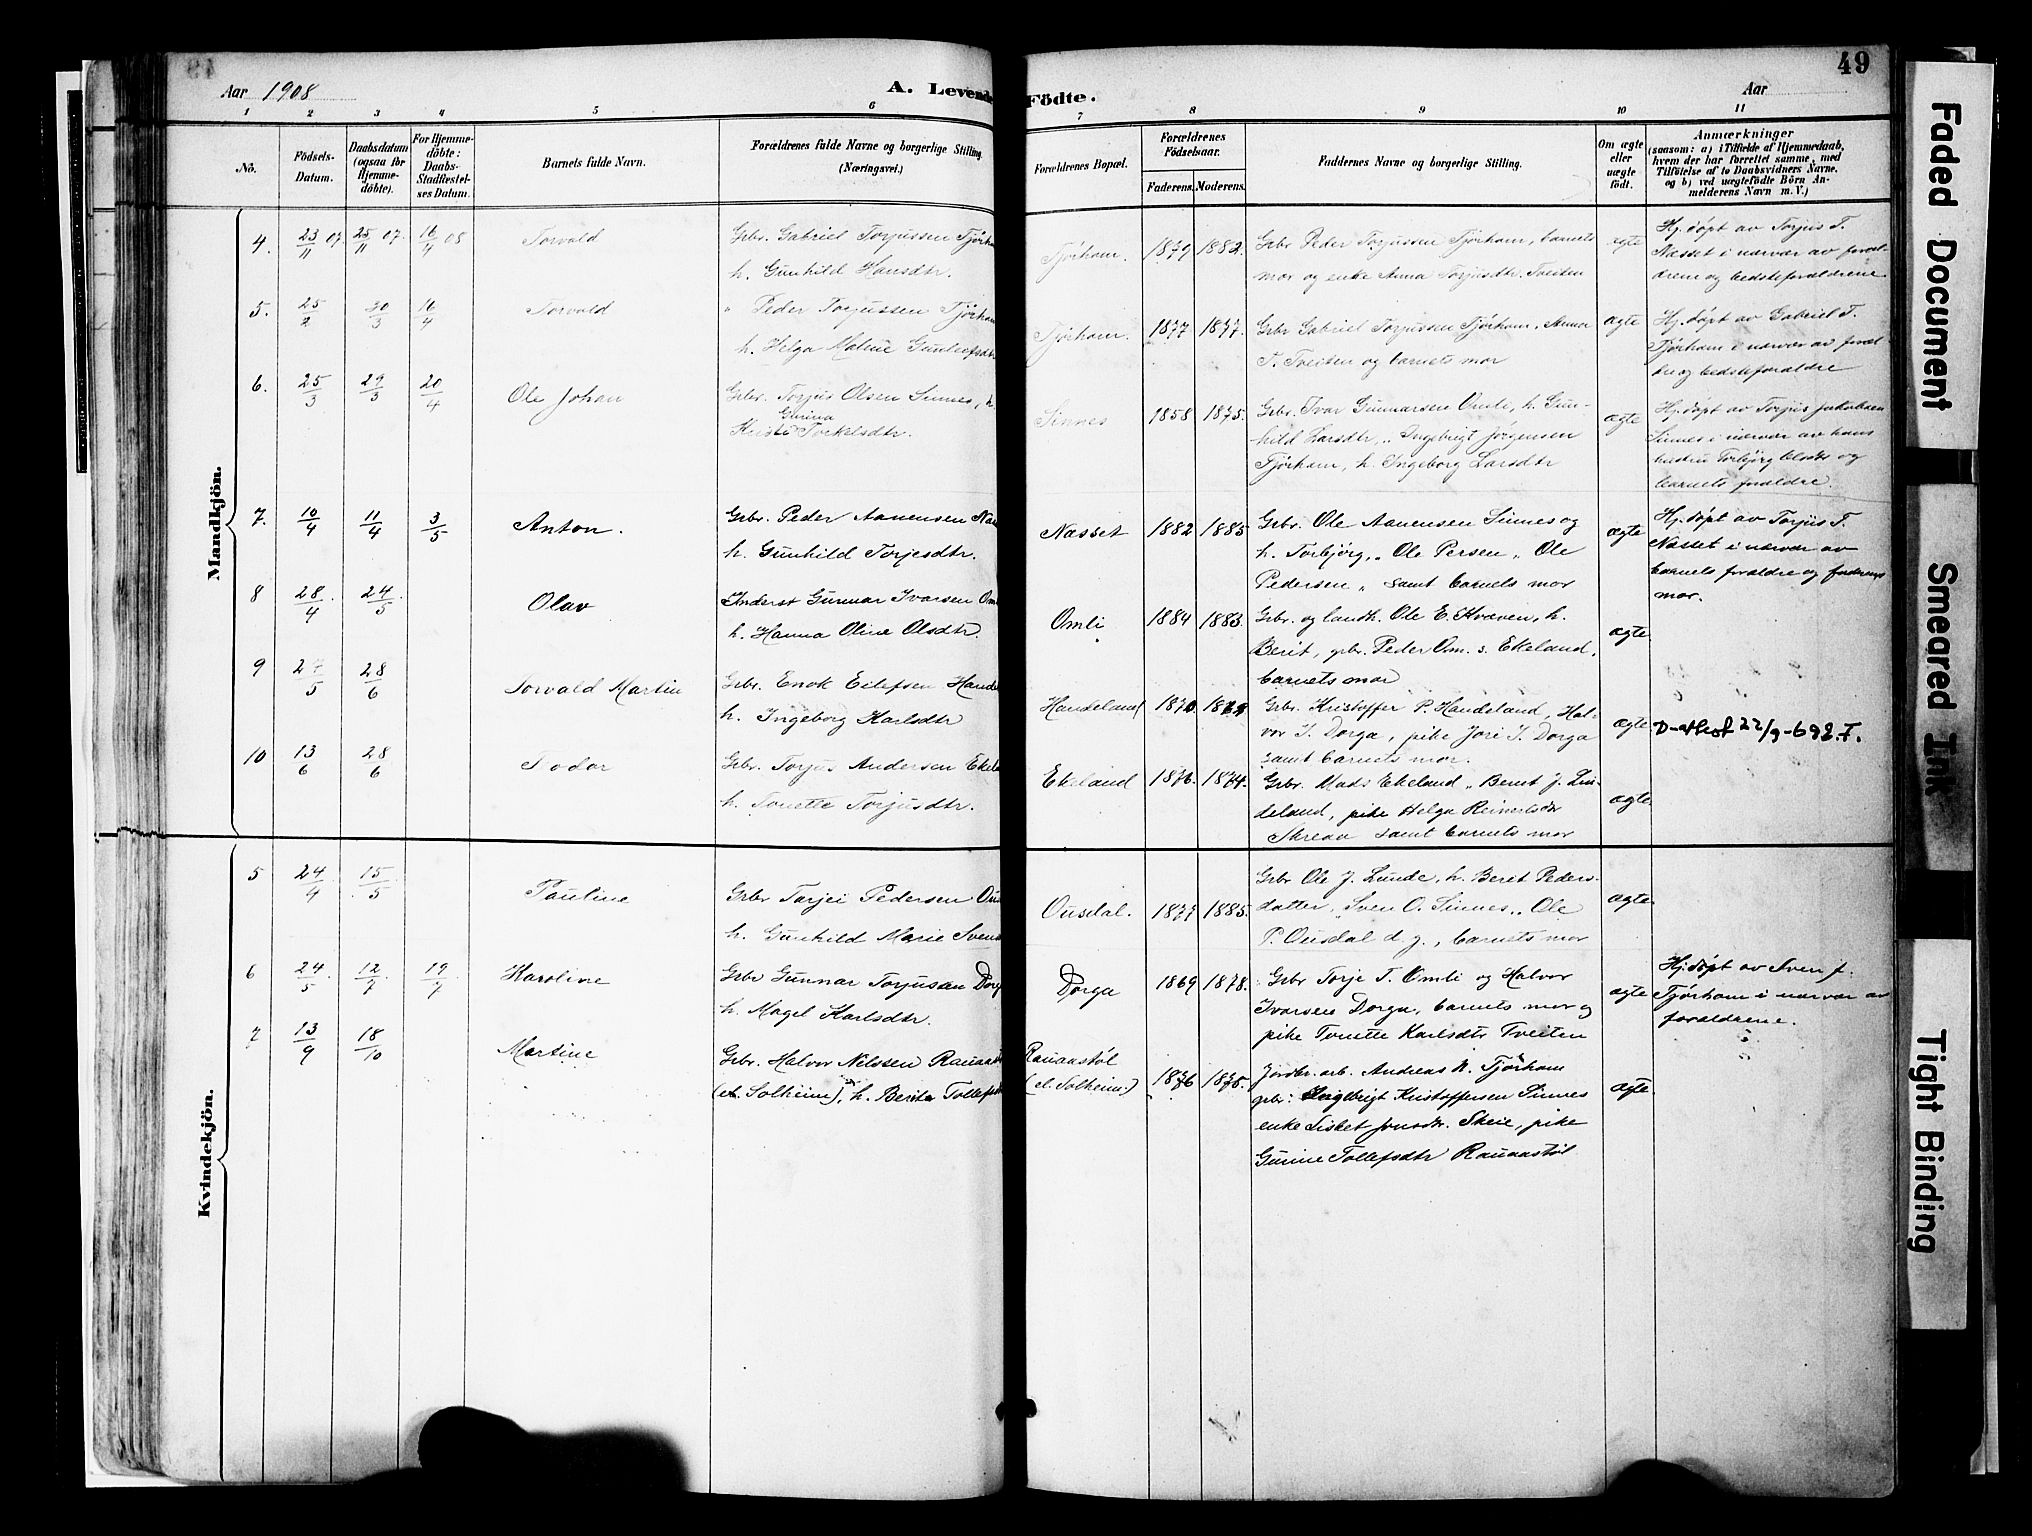 49
Aar 1908
A. Levende Födte.
Aar
1 2 3 4 5 6 7 8 9 10 11
No.
Födsels-Datum.
Daabsdatum (ogsaa for Hjemme-döbte).
For Hjemme-döbte: Daabs-Stadfæstel-ses Datum.
Barnets fulde Navn.
Forældrenes fulde Navne og borgerlige Stilling. (Næringsvei.)
Forældrenes Bopæl.
Forældrenes Födselsaar.
Faderens. Moderens.
Faddernes Navne og borgerlige Stilling.
Om ægte eller uægte födt.
Anmærkninger
(saasom: a) i Tilfælde af Hjemmedaab,
hvem der har forrettet samme, med
Tilföielse af to Daabsvidners Navne,
og b) ved uægtefödte Börn An-
melderens Navn m. V.)
Mandkjön.
4. 23/11 07. 25/11 07. 16/4 08 Torvald
Grbr. Gabriel Torjussen Tjörhom
h. Gunhild Hansdtr.
Tjörhom. 1879 1882.
Grbr Peder Torjussen Tjörhom, barnets
mor og enke Anna Torjusdtr. Tveiten
ægte
Hj.døpt av Torjus T.
Næsset i nærvær av foræl-
drene og bedsteforældrene
5. 25/2 30/3 16/4 Torvald
" Peder Torjussen Tjörhom
h. Helga Malene Gunleefsdtr
Tjörhom. 1877 1877.
Grbr Gabriel Torjussen Tjörhom, Anna
T. Tveiten og barnets mor
ægte
Hj.døpt av Gabriel T.
Tjörhom i nærvær av foræl-
dre og bedsteforældre
6. 25/3 29/3 20/4 Ole Johan
Grbr. Torjus Olsen Sinnes, h.
Gurina
Torkelsdtr.
Sinnes 1858 1875.
Grbr. Ivar Gunnarsen Omli, h. Gun-
hild Larsdtr, " Ingebrigt Jörgensen
Tjörhom, h. Ingeborg Larsdtr
ægte
Hj.døpt av Torjus Jakobsen
Sinnes i nærvær av hans
hustru Torbjörg Olsdtr og
barnets forældre.
7. 10/4 11/4 3/5 Anton.
Grbr. Peder Aanensen Næs
h. Gunhild Torjesdtr.
Næsset 1882 1885
Grbr. Ole Aanensen Sinnes og
h. Torbjörg, " Ole Persen " Ole
Pedersen " samt barnets mor
ægte
Hj.døpt av Torjus T.
Næsset i nærvær av
barnets forældre og faderens
mor.
8 28/4 24/5 Olav
Inderst Gunnar Ivarsen Om
h. Hanna Oline Olsdtr.
Omli 1884 1883.
Grbr. og landh. Ole E. Kvæven, h.
Berit, grbr. Peder Om. s. Ekeland,
barnets mor
ægte
9 27/5 28/6 Torvald Martin
Grbr. Enok Eilefsen Hande
h. Ingeborg Karlsdtr
Handeland 1870
Grbr. Kristoffer P. Handeland, Hal-
vor I. Dorga, pike Jori I. Dorga
samt barnets mor.
ægte
22/9-69
10 13/6 28/6 Todor
Grbr. Torjus Andersen Ekel
h. Tonette Torjusdtr.
Ekeland 1876. 1874.
Grbr. Mads Ekeland " Bernt J. Lin-
deland, pike Helga Reinertsdtr
Skreaa samt barnets mor
ægte
Kvindekjön.
5 24/4 15/5 Pauline
Grbr Torjei Pedersen Ous
h. Gunhild Marie Svens
Ousdal. 1877 1885.
Grbr Ole J. Lunde, h. Berit Peders-
datter, Sven O. Sinnes, " Ole
P. Ousdal d. y., barnets mor
ægte
6 24/5 12/7 19/7 Karoline
Grbr Gunnar Torjusen Dorg
h. Magel Karlsdtr.
Dorga 1869 1878.
Grbr Torje T. Omli og Halvor
Ivarsen Dorga, barnets mor og
pike Tonette Karlsdtr Tveiten
ægte
Hj.døpt av Sven J.
Tjörhom i nærvær av
forældrene.
7 13/9 18/10 Martine
Grbr. Halvor Nilssen Rauaast
(el. Solheim), h. Berit Tollefs
Rauaastöl
(el. Solheim.) 1876 1875.
Jordbr. arb. Andreas N. Tjörhom
grbr. Ingebrigt Kristoffersen Sinnes
enke Lisbet Jonsdtr. Skeie, pike
Gurine Tollefsdtr Rauaastöl
ægte
Faded Document
Smeared Ink
Tight Binding